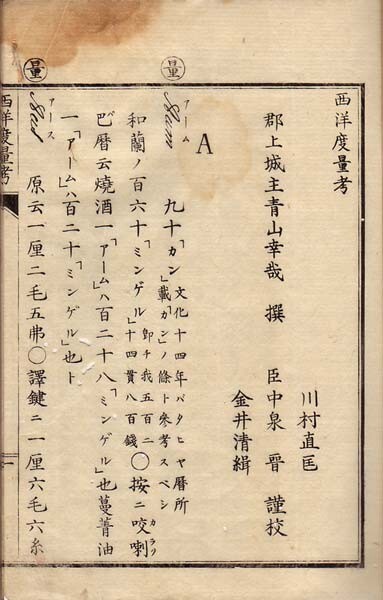 西洋度量考
郡上城主青山幸哉 撰 臣中泉晋 謹校
川村直匡
金井清緝
A
量
アーム
Aam
九十「カン」文化十四年バタヒヤ暦所載「カン」ノ條ト參考スベシ
和蘭ノ百六十「ミンゲル」即チ我五百二十四貫八百錢〇按ニ咬𠺕
カラバ
巴暦云燒酒一「アーム」ハ百二十八「ミンゲル」也蔓菁油
一「アーム」ハ百二十「ミンゲル」也ト
量
アース
原云一厘二毛五弗〇譯鍵ニ一厘六毛六糸
西洋度量考
一